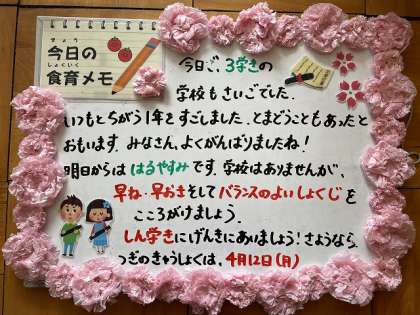 きょう
今日の
しょくいく
食育メモ
今日で、3学きの
学校もさいごでした。
いつもとちがう1年をすごしました。とまどうこともあったと
おもいます。みなさん、よくがんばりましたね!
明日からははるやすみです。学校はありませんが、
早ね・早おきそしてバランスのよいしょくじを
こころがけましょう。
しん学きにげんきにあいましょう!さようなら。
つぎのきゅうしょくは、4月12日(月)